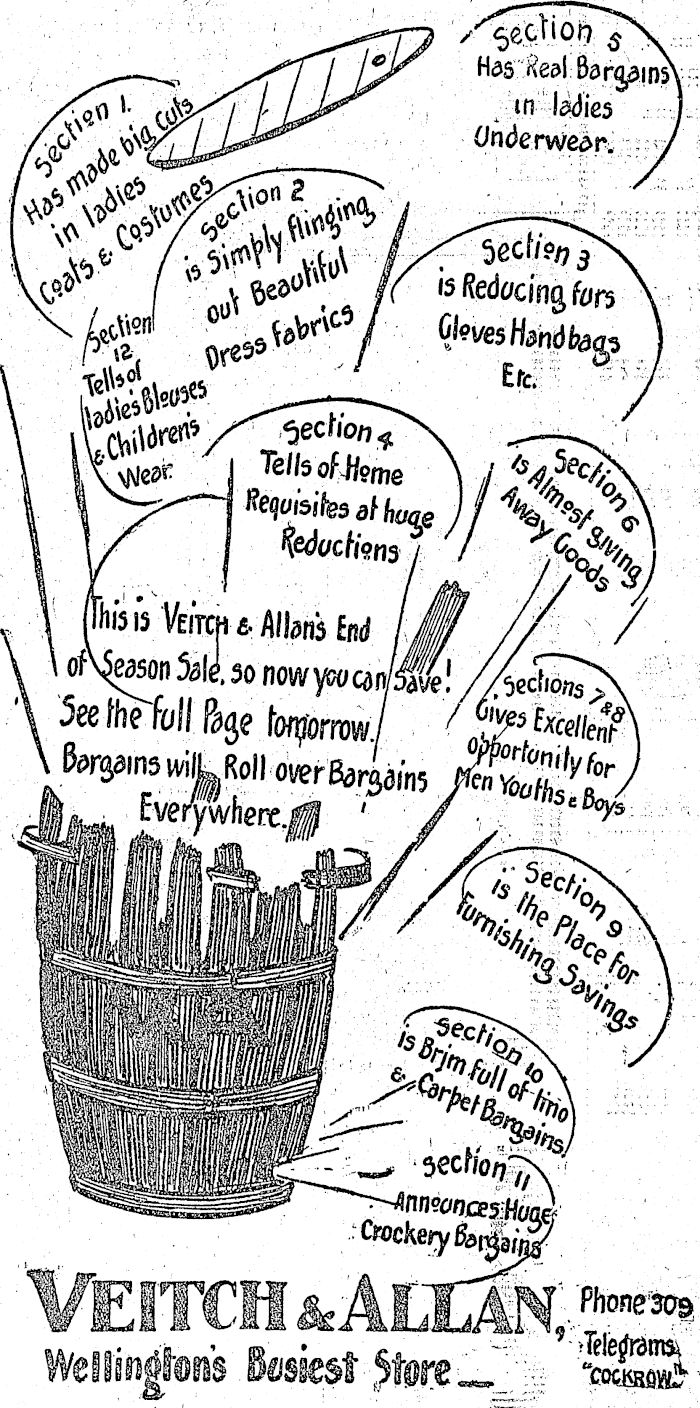 Section 1.
Has made big cuts
in ladies
Coats & Costumes
Section 2
is Simply flinging
out Beautiful
Dress fabrics
Section 5
Has Real Bargains
in ladies
Underwear.
Section 3
is Reducing furs
Gloves Handbags
Etc.
Section
12
Tells of
ladies Blouses
& Children's
Wear.
Section 4
Tells of Home
Requisites at huge
Reductions
Section 6
is Almost giving
Away Goods
This is VEITCH & Allan's End
of Season Sale, so now you can Save!
See the full Page tomorrow.
Bargains will Roll over Bargains
Everywhere.
Sections 7 & 8
Gives Excellent
opportunity for
Men Youths & Boys
Section 9
is the Place for
furnishing Savings
Section 10
is Brim full of lino
& Carpet Bargains.
Section 11
Announces Huge
Crockery Bargains
VEITCH & ALLAN,
Wellington's Busiest Store
Phone 309
Telegrams
"COCKROW"